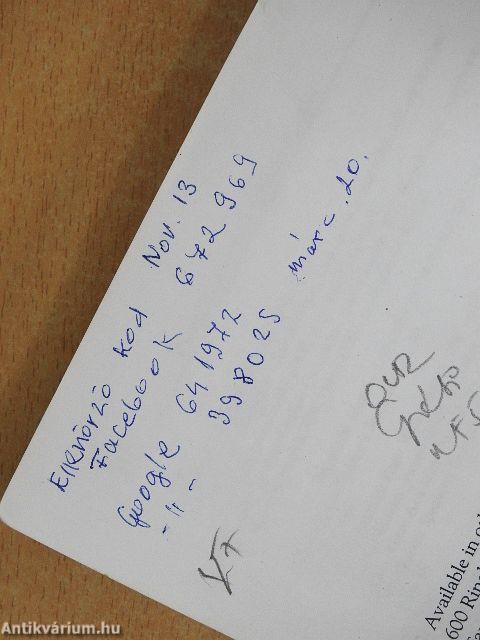 Ellenőrző kod Nov. 13
Facebook 672 969
Google 641972
-"- 398025 márc. 20.
Available in
600 Rin
Antikvárium.hu